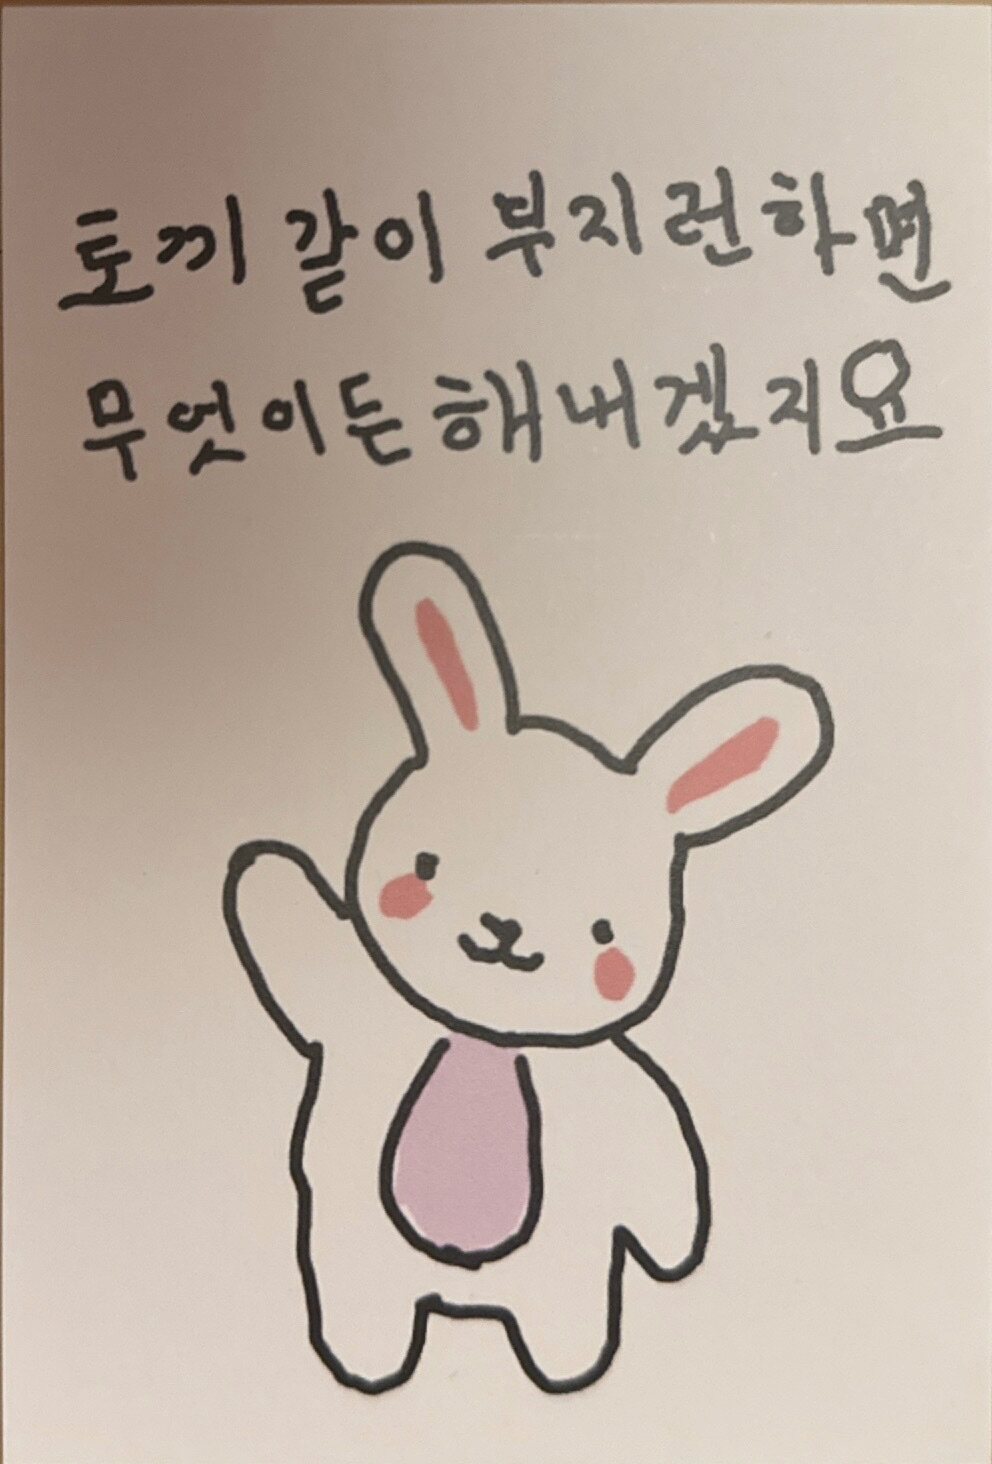 토끼 같이 부지런하면
무엇이든 해내겠지요